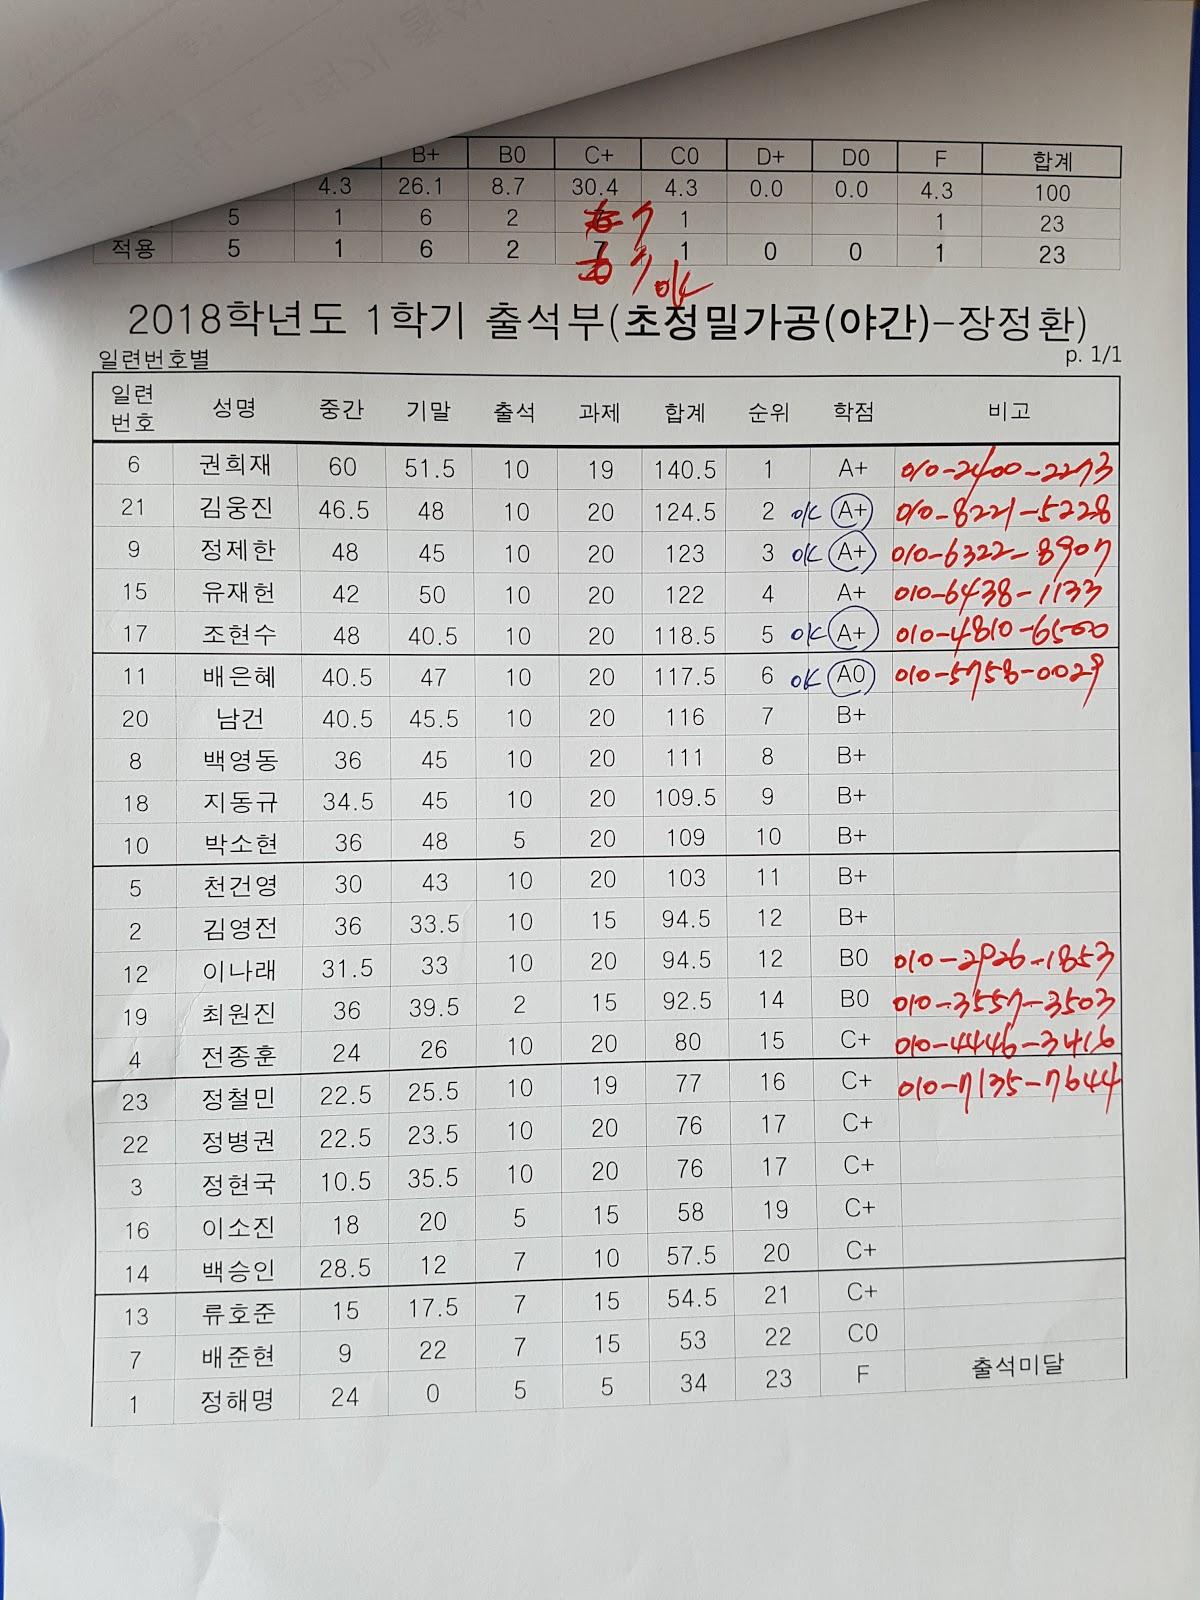 B+ B0 C+ C0 D+ D0 F 합계
4.3 26.1 8.7 30.4 4.3 0.0 0.0 4.3 100
5 1 6 2 7 1 1 23
적용 5 1 6 2 7 1 0 0 1 23
7 ok
2018학년도 1학기 출석부(초정밀가공(야간)-장정환)
일련번호별 p. 1/1
일련번호 성명 중간 기말 출석 과제 합계 순위 학점 비고
6 권희재 60 51.5 10 19 140.5 1 A+ 010-2400-2273
21 김웅진 46.5 48 10 20 124.5 2 ok A+ 010-8221-5228
9 정제한 48 45 10 20 123 3 ok A+ 010-6322-8907
15 유재헌 42 50 10 20 122 4 A+ 010-6438-1133
17 조현수 48 40.5 10 20 118.5 5 ok A+ 010-4810-6500
11 배은혜 40.5 47 10 20 117.5 6 ok A0 010-5758-0029
20 남건 40.5 45.5 10 20 116 7 B+
8 백영동 36 45 10 20 111 8 B+
18 지동규 34.5 45 10 20 109.5 9 B+
10 박소현 36 48 5 20 109 10 B+
5 천건영 30 43 10 20 103 11 B+
2 김영전 36 33.5 10 15 94.5 12 B+
12 이나래 31.5 33 10 20 94.5 12 B0 010-2926-1853
19 최원진 36 39.5 2 15 92.5 14 B0 010-3557-3503
4 전종훈 24 26 10 20 80 15 C+ 010-4446-3416
23 정철민 22.5 25.5 10 19 77 16 C+ 010-7135-7644
22 정병권 22.5 23.5 10 20 76 17 C+
3 정현국 10.5 35.5 10 20 76 17 C+
16 이소진 18 20 5 15 58 19 C+
14 백승인 28.5 12 7 10 57.5 20 C+
13 류호준 15 17.5 7 15 54.5 21 C+
7 배준현 9 22 7 15 53 22 C0
1 정해명 24 0 5 5 34 23 F 출석미달